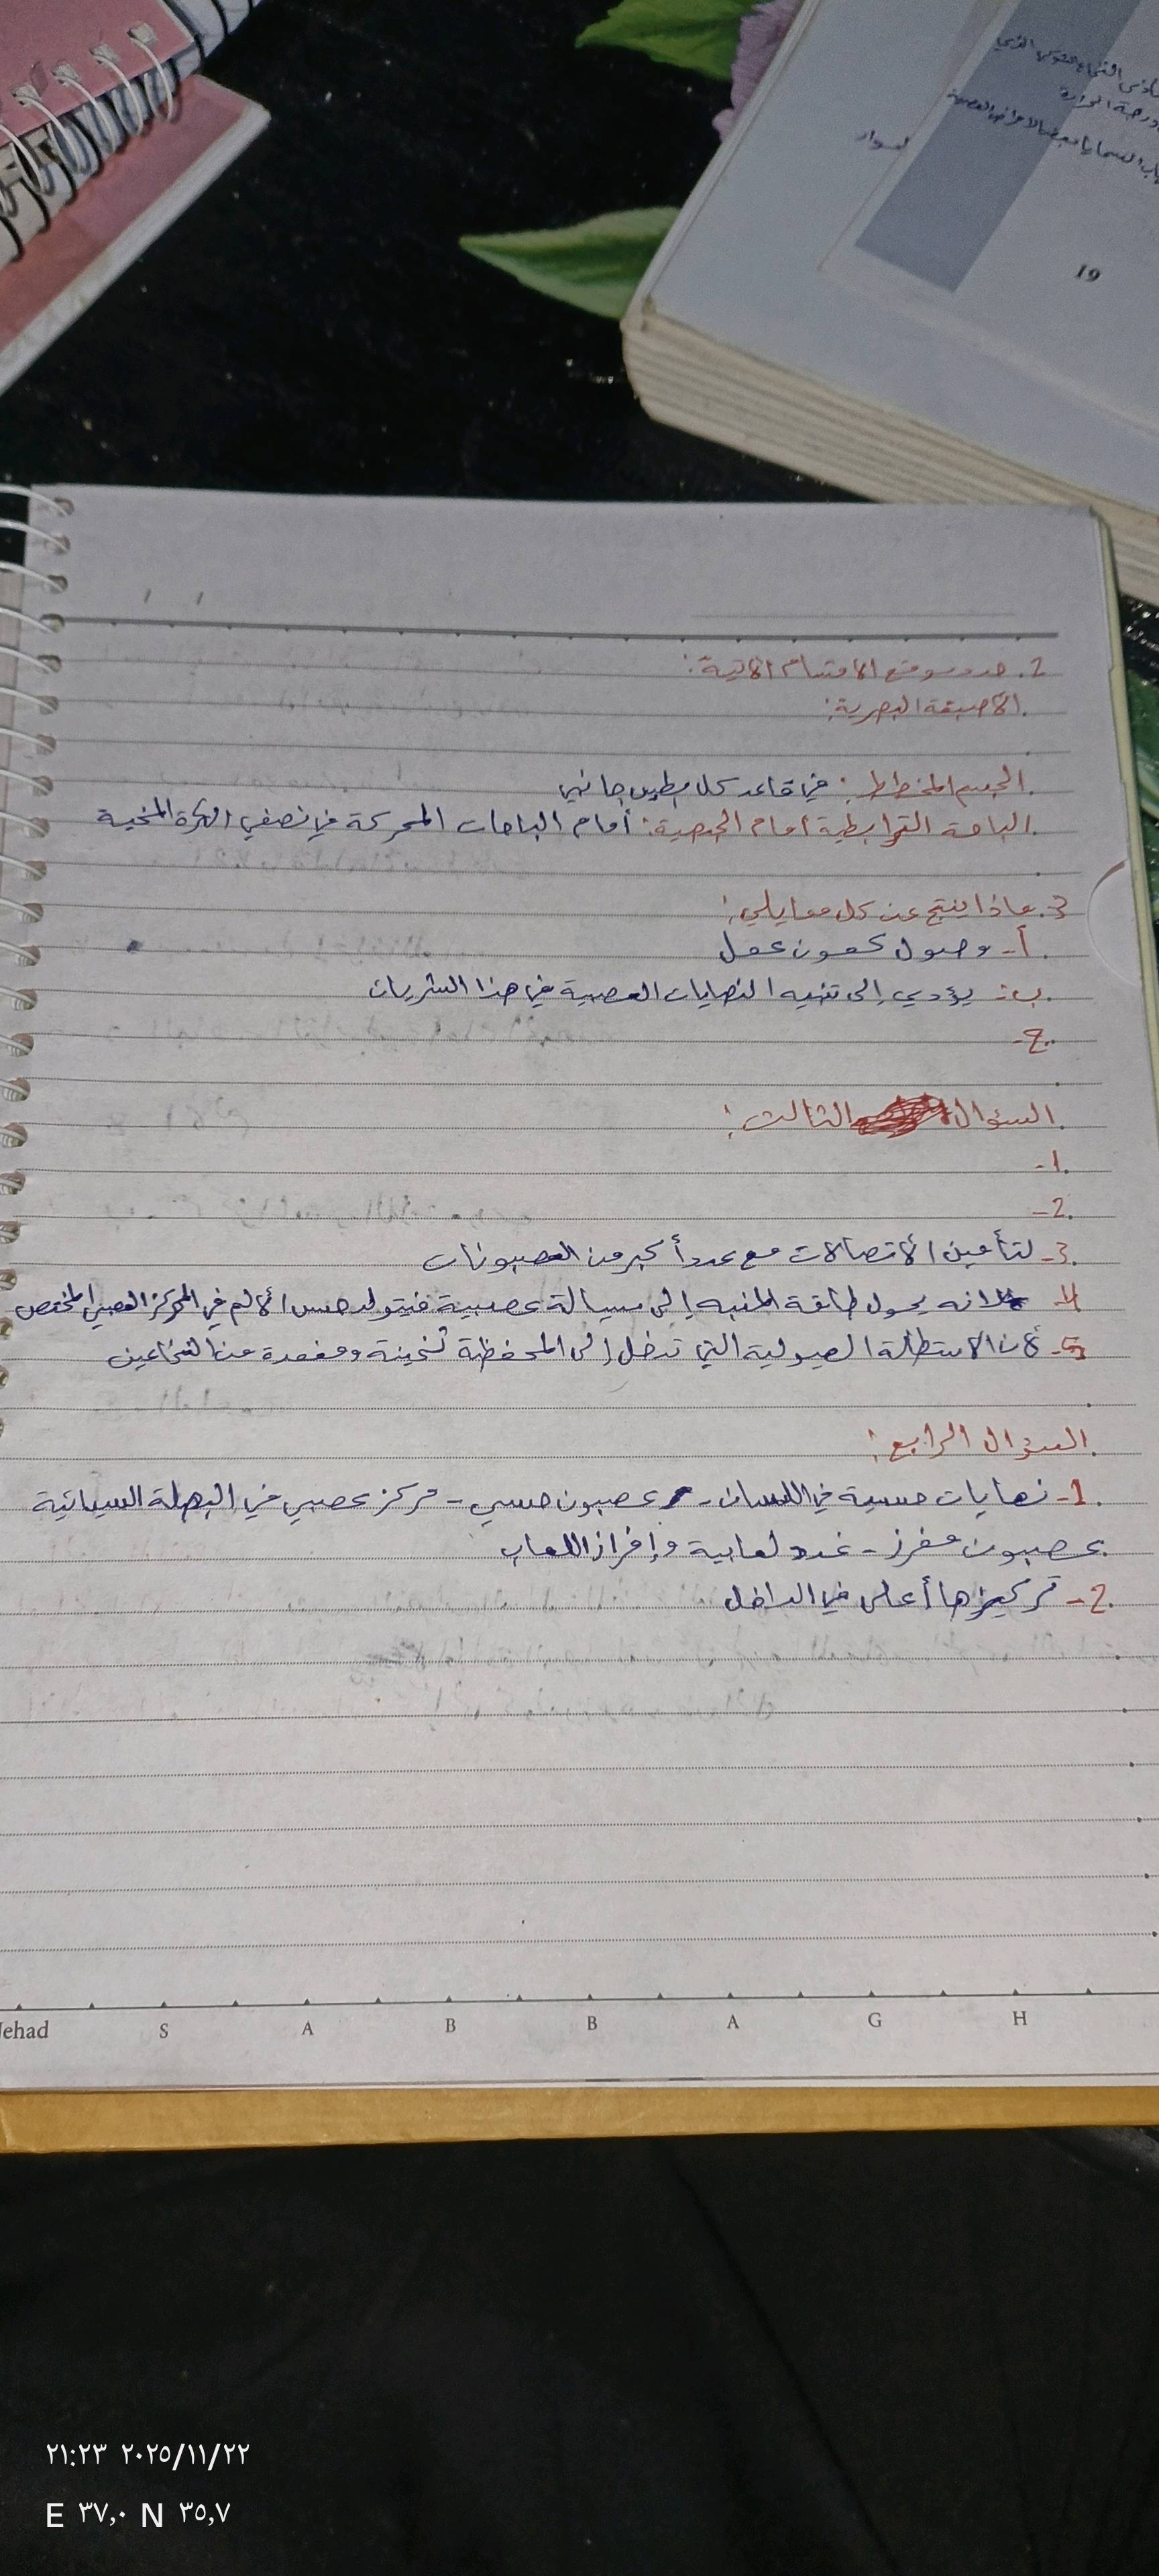 19
2. حدد موقع الاقسام الاتية:
الأصبغة البصرية:
الجسم المخطط: في قاعد كل بطين جانبي
الباحة الترابطية أمام الجبهية: أمام الباحات المحركة في نصفي الكرة المخية
3. ماذا ينتج عن كل ممايلي:
أ- وصول كمون عمل
ب: يؤدي إلى تنبيه النهايات العصبية في هذا الشريان
ج-
السؤال الثالث:
1-
2-
3- لتأمين الاتصالات مع عدد أكبر من العصبونات
4- لانه يحول طاقة المنبه إلى سيالة عصبية فيتولد حس الألم في المركز العصبي المختص
5- لأن الاستطالة الهيولية التي تدخل إلى المحفظة ثخينة ومغمدة من النخاعين
السؤال الرابع:
1- نهايات حسية في اللسان - عصبون حسي - مركز عصبي في البصلة السيسائية
عصبون مفرز - غدد لعابية وإفراز اللعاب
2- تركيزها أعلى في الداخل
Jehad S A B B A G H
٢١:٢٣ ٢٠٢٥/١١/٢٢
E ٣٧,٠ N ٣٥,٧